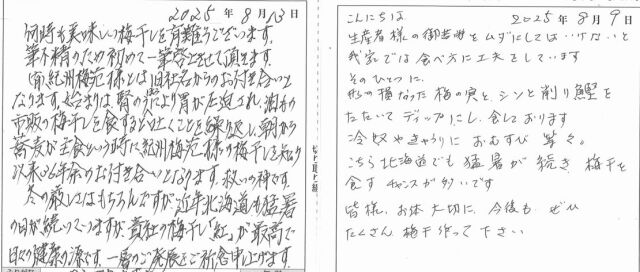 2025年8月13日
何時も美味しい梅干しを有難うございます。
筆不精のため初めて一筆啓上させて頂きます。
(有)紀州梅苑様とは旧社名からのお付き合いと
なります。始まりは、腎の より胃が圧迫され、
市販の梅干しを食すると吐くことを繰り返し、朝から
蕎麦が主食という時に紀州梅苑様の梅干しを知り
以来36年余のお付き合いとなります。救いの神です。
冬の厳しさはもちろんですが、近年北海道も猛暑
の日が続いていますが、貴社の梅干し「紅」が最高で
日々の健康の源です。一層のご発展をご祈念申し上げます。
切り取り線
2025年8月9日
こんにちは
生産者様の御苦労をムダにしては いけないと
我家では食べ方に工夫をしています
そのひとつに、
形の損なった梅の実と、シソと削り鰹を
たたいて ディップにし、食しております
冷奴やきゅうりに おむすび 等々。
こちら北海道でも 猛暑が続き 梅干を
食す チャンスが多いです
皆様、お体大切に、今後も、ぜひ
たくさん 梅干作って下さい